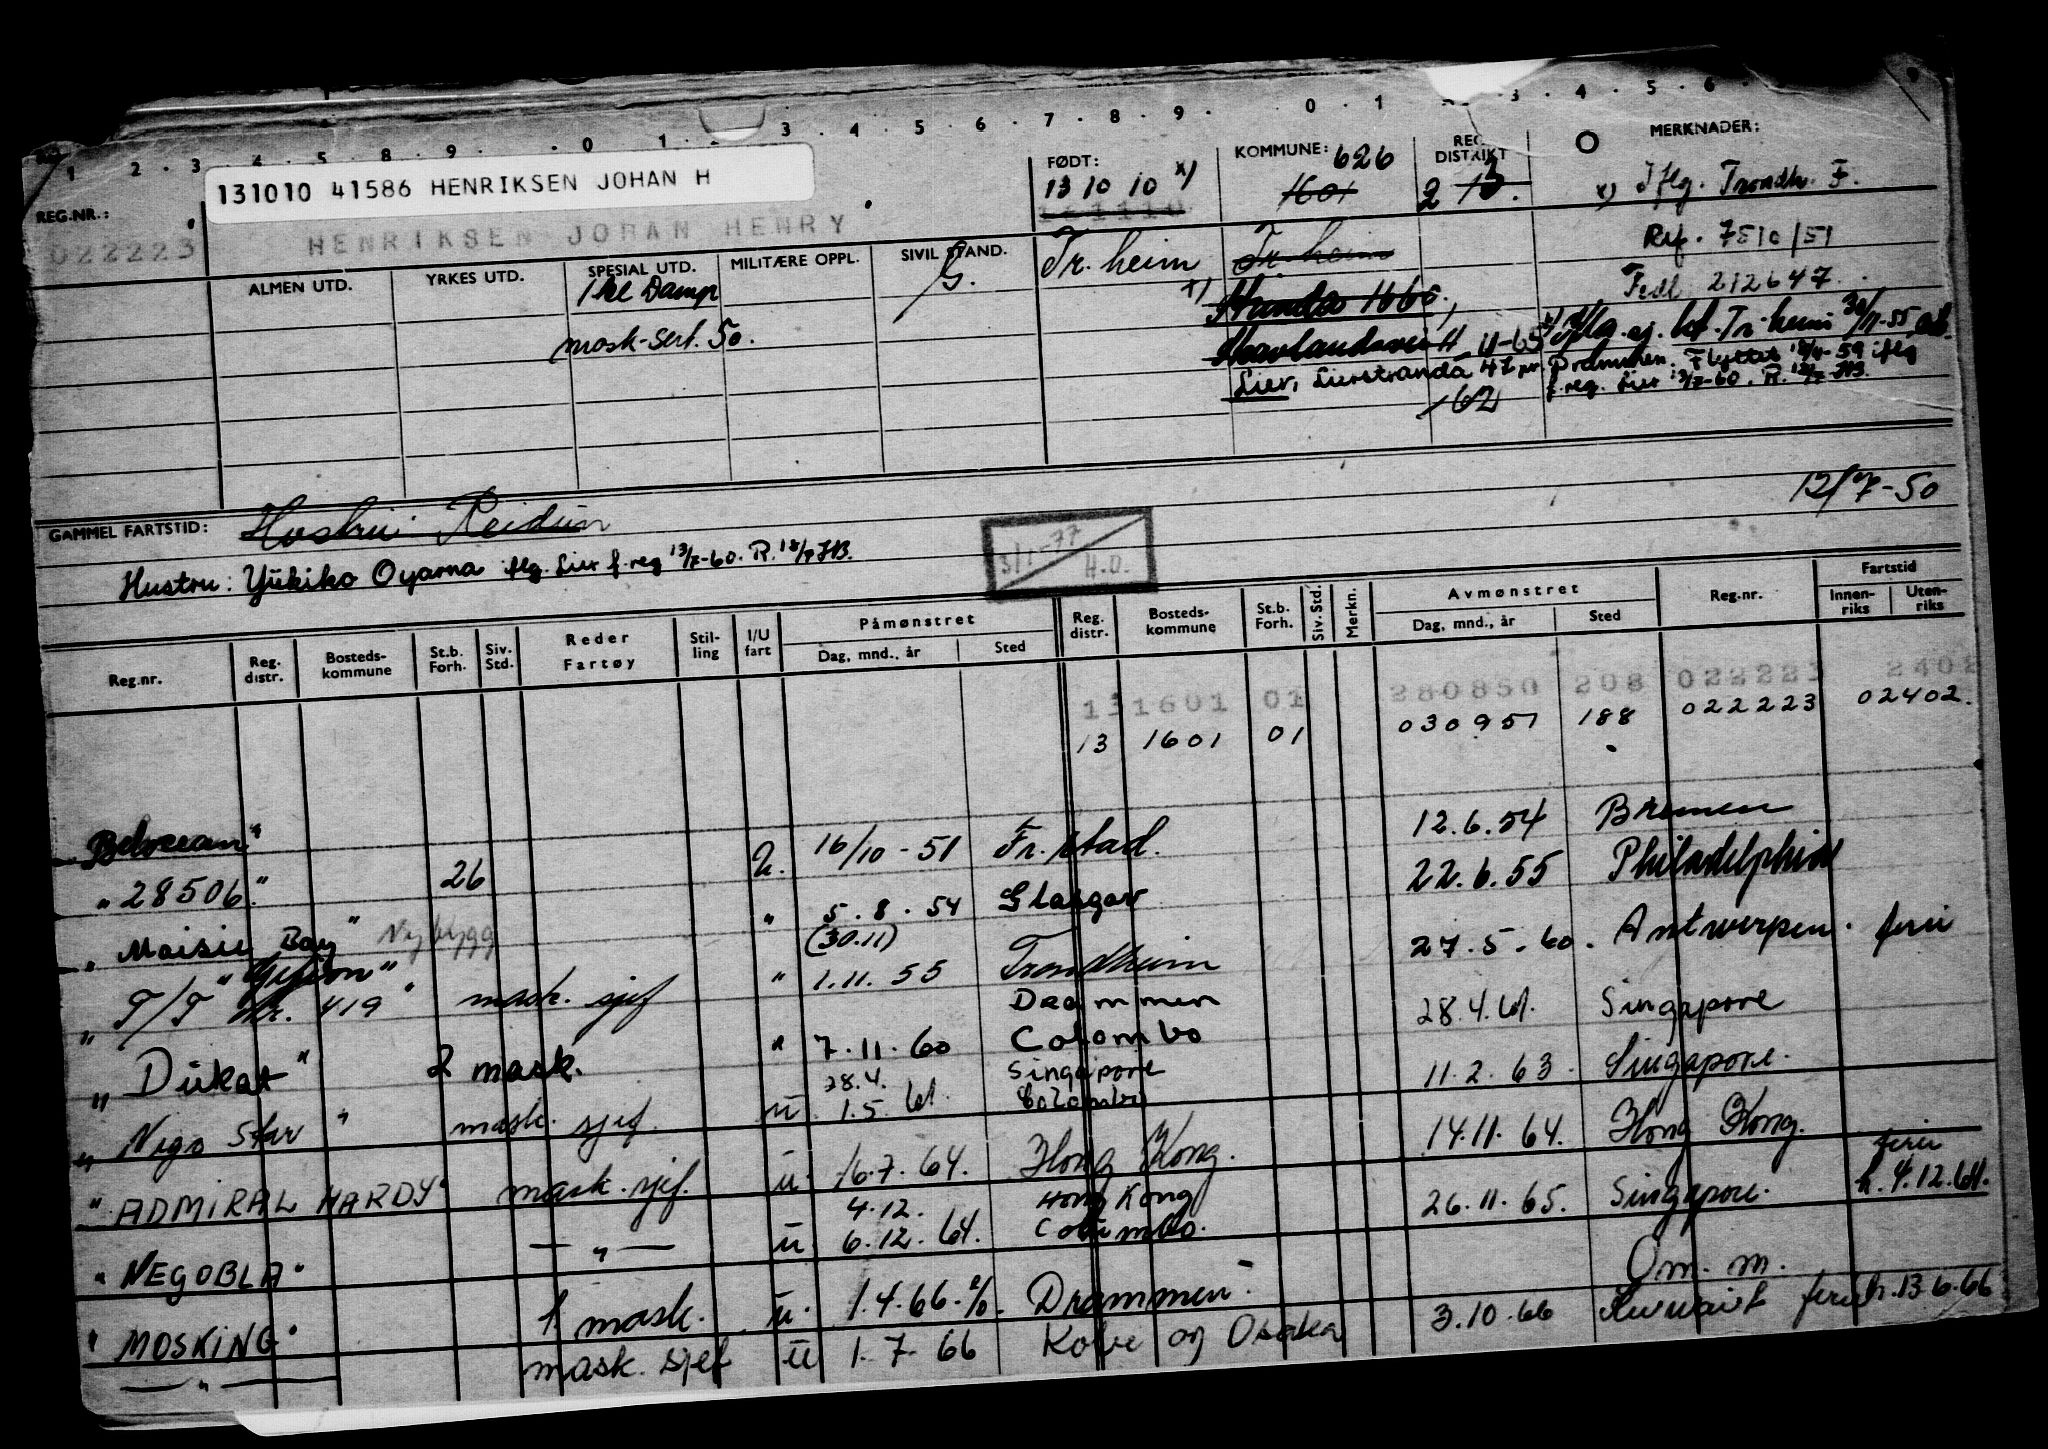 1 2 . 3 . 4 . 5 . 8 . 9 . 0 . 1 . 3 . 4 . 5 . 6 . 7 . 8 . 9 . 0 . 1 . 3 . 4 . 5 . 6 .
131010 41586 HENRIKSEN JOHAN H
REG.NR.:
022223
HENRIKSEN JOHAN HENRY
FØDT:
13 10 10 x)
KOMMUNE: 626
1601
REG. DISTRIKT
2 13.
MERKNADER:
x) Iflg. Trondh. F.
Ref. 7510/51
Fedl 212647.
ALMEN UTD.
YRKES UTD.
SPESIAL UTD.
MILITÆRE OPPL.
SIVIL STAND.
1 kl Damp
mask-sert. 50.
G.
Tr. heim
Tr. heim
Lier, Lierstranda 47 pr. Drammen. Flyttet
f.reg. Lier 13/7-60. R. 18/7 JB.
162
12/7-50
GAMMEL FARTSTID:
Hustru: Reidun
Hustru: Yukiko Oyama iflg. Lier f.reg 13/7-60. R. 18/7 JB.
3/1-77
H.O.
Reg.nr.
Reg. distr.
Bosteds-kommune
St.b. Forh.
Siv. Std.
Reder
Fartøy
Stil-ling
I/U fart
Påmønstret
Dag, mnd., år
Sted
Reg. distr.
Bosteds-kommune
St.b. Forh.
Siv. Std.
Merkn.
Avmønstret
Dag, mnd., år
Sted
Reg.nr.
Fartstid
Innen-riks
Uten-riks
131601 01 280850 208 022223 2402
13 1601 01 030951 188 022223 02402.
16/10-51 Fr.stad. 12.6.54 Bremen
"28506" 26 U.
5.8.54 Glasgow 22.6.55 Philadelphia
" Maisie Bay" Nybygg "
(30.11)
1.11.55 Trondheim 27.5.60. Antwerpen. ferie
" T/T "Gefion" nr. 419" mask. sjef "
Drammen
" Dukat" 2 mask. " 7.11.60 Colombo 28.4.61. Singapore
28.4. Singapore
" Nego Star" mask. sjef. u 1.5.61. Colombo 11.2.63. Singapore.
" ADMIRAL HARDY" mask. sjef. u. 16.7.64. Hong Kong. 14.11.64. Hong Kong. ferie
4.12. Hong Kong
" NEGOBLA" — " — u 6.12.64. Columbo. 26.11.65. Singapore. h. 4.12.64.
" MOSKING" 1 mask. u. 1.4.66. Drammen Om. m.
— " — mask. sjef u 1.7.66 Kobe og Osaka 3.10.66 Kuwait ferie h. 13.6.66